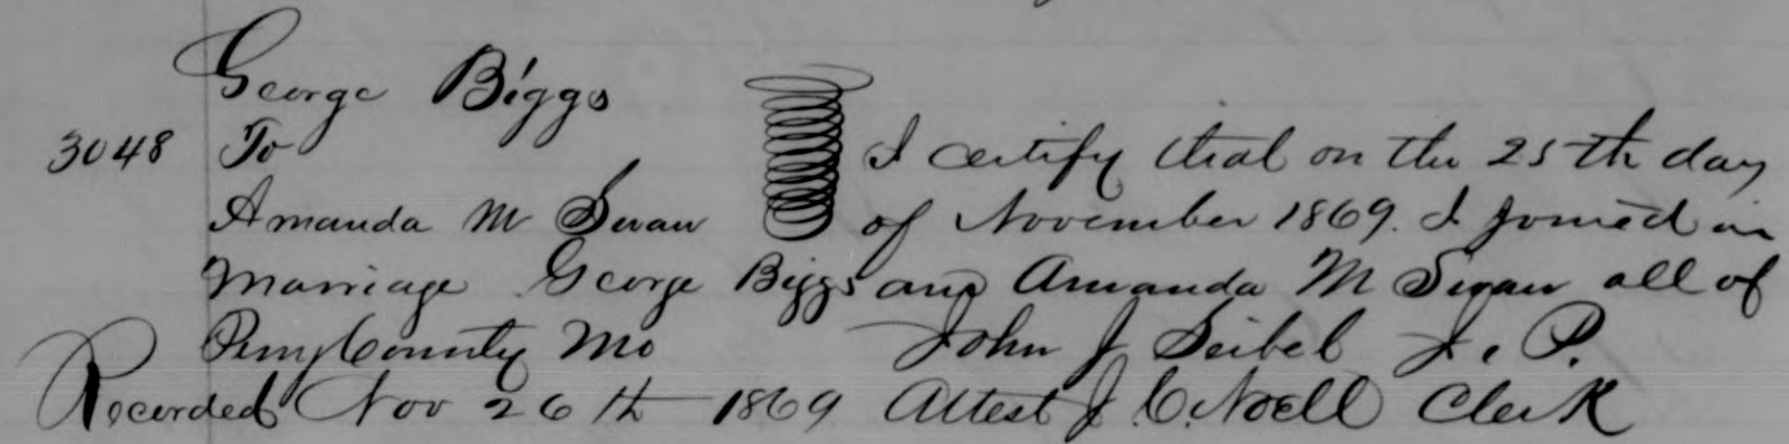 George Biggs
3048 To I certify that on the 25th day
Amanda M Swan of November 1869. I joined in
Marriage George Biggs and Amanda M Swan all of
Perry County Mo John J Seibel J. P.
Recorded Nov 26th 1869 Attest J. C. Noell Clerk